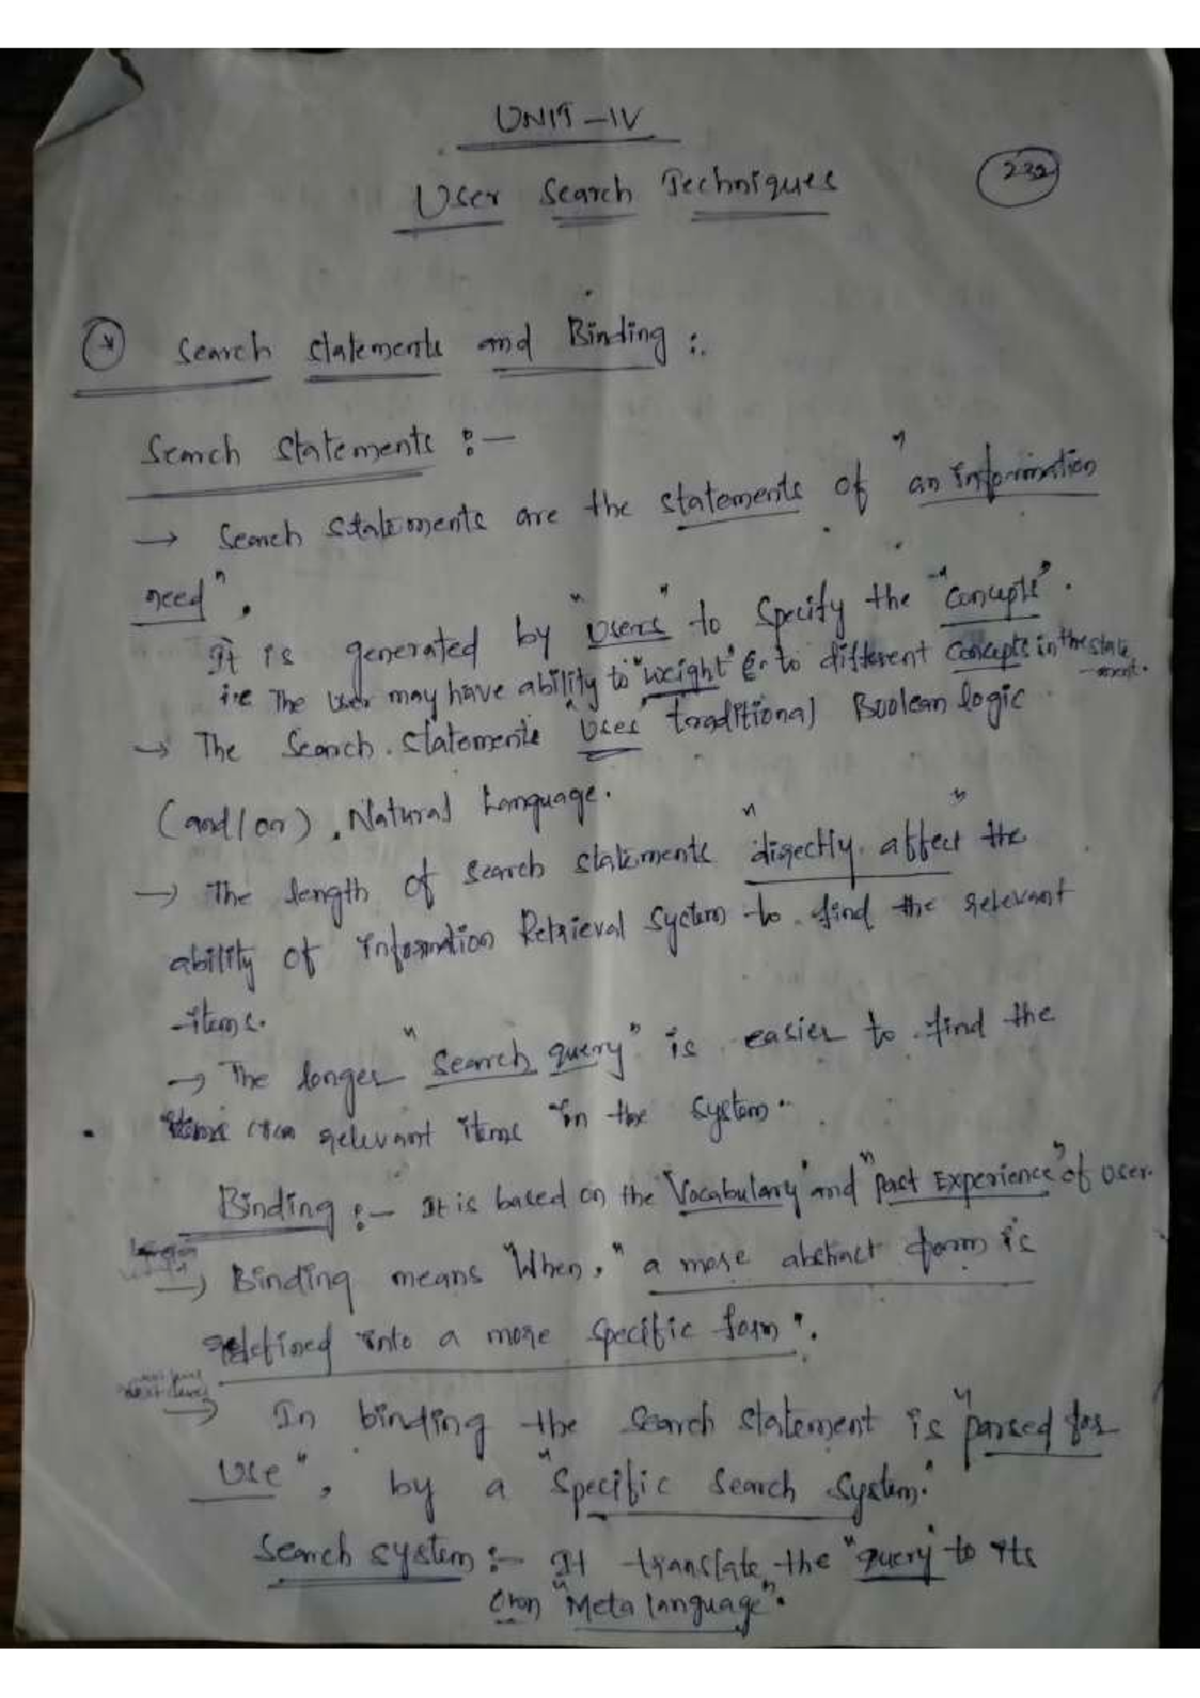 UNIT-IV
232
User Search Techniques
* Search statements and Binding :.
Search statements :-
→ Search statements are the statements of "an information
need".
It is generated by "users" to specify the "concepts".
i.e The user may have ability to "weight" to different concepts in the state
-ment.
→ The Search statements "uses" traditional Boolean logic
(and/or), Natural Language.
→ The length of search statements "directly affect" the
ability of Information Retrieval System to find the relevant
items.
→ The longer "search query" is easier to find the
relevant items in the system.
Binding :- It is based on the "Vocabulary" and "past Experience" of user.
→ Binding means "When," a more abstract form is
redefined into a more specific form".
next level
→ In binding the search statement is "parsed for
use", by a "specific search system."
Search system :- It translate the "query" to its
own "Meta language".